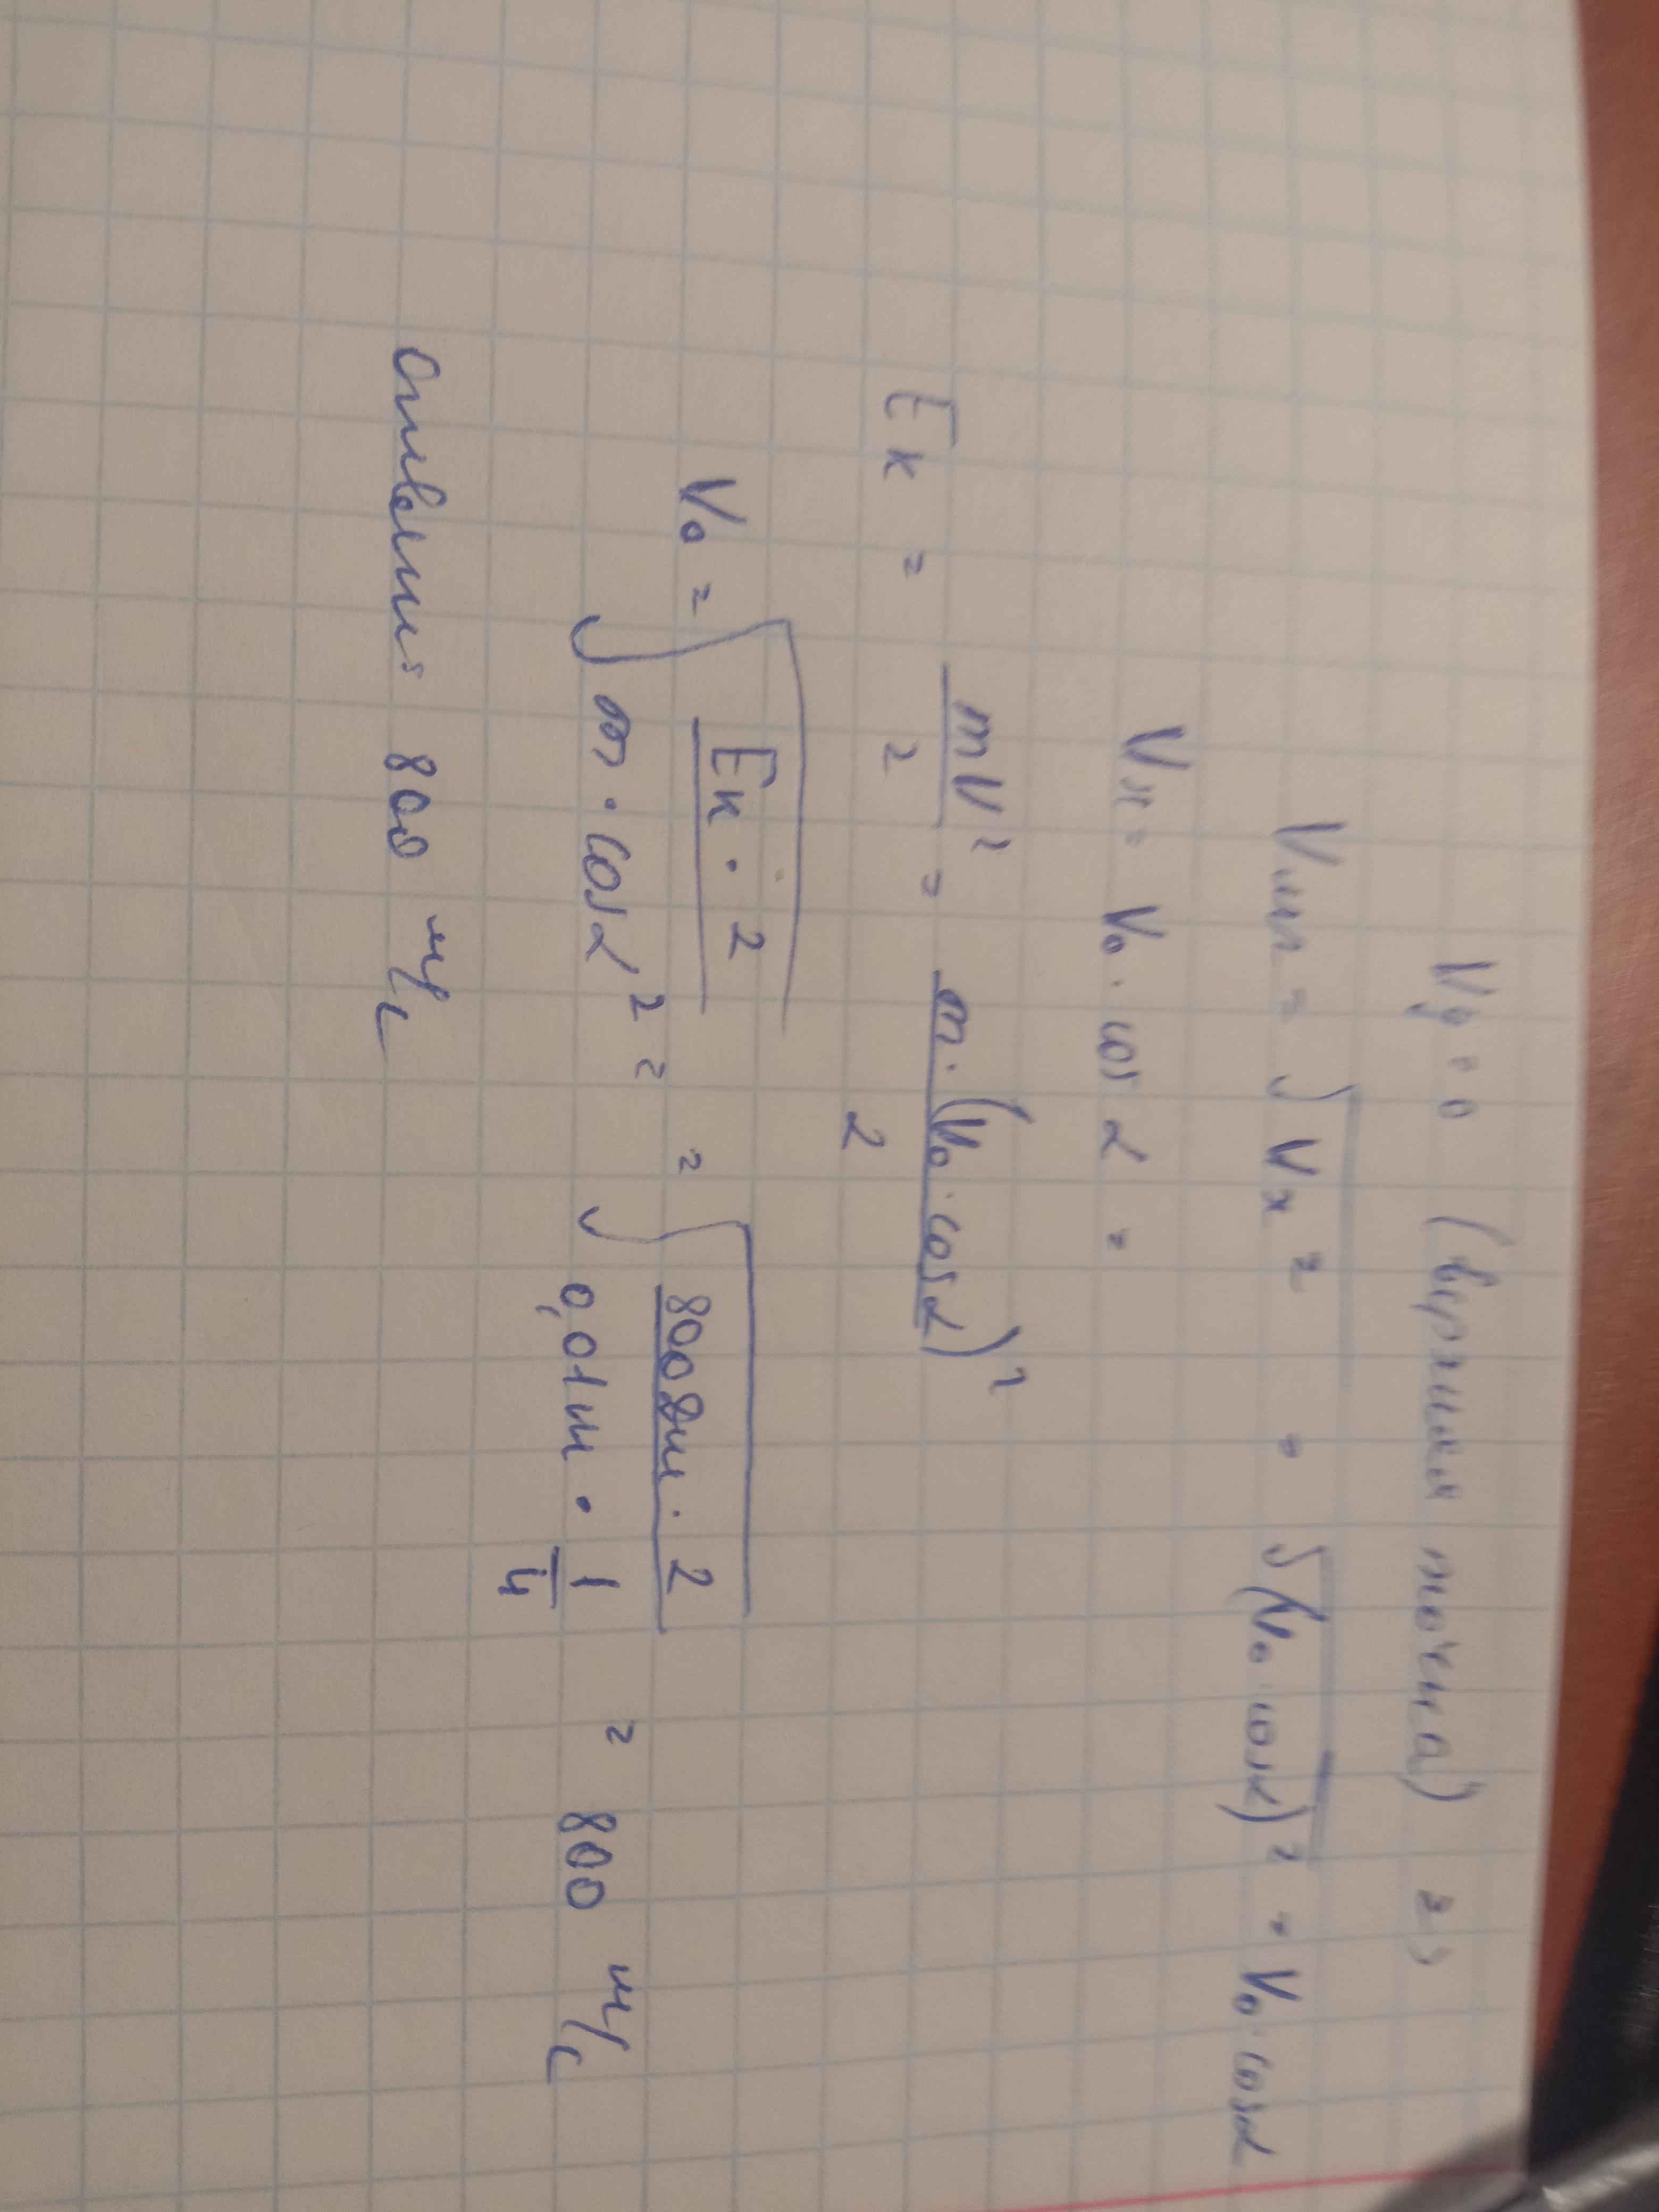 Vy = 0 (верхняя точка) =>
Vим = √Vx² = √(V₀·cosα)² = V₀·cosα
Vx = V₀·cos α =
Eк = mV²/2 = m·(V₀·cosα)²/2
V₀ = √(Eк·2/(m·cosα²)) = = √(800Дж·2/(0,01кг·1/4)) = 800 м/с
Ответ: 800 м/с